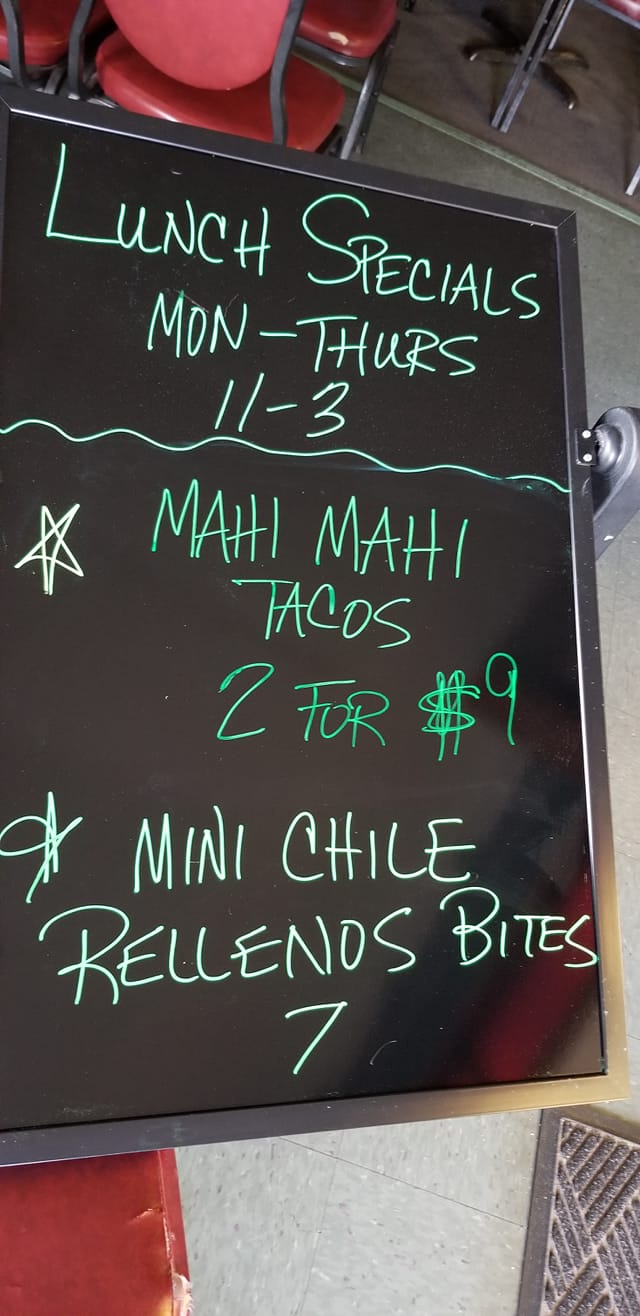 LUNCH SPECIALS
MON-THURS
11-3
MAHI MAHI
TACOS
2 FOR $9
MINI CHILE
RELLENOS BITES
7